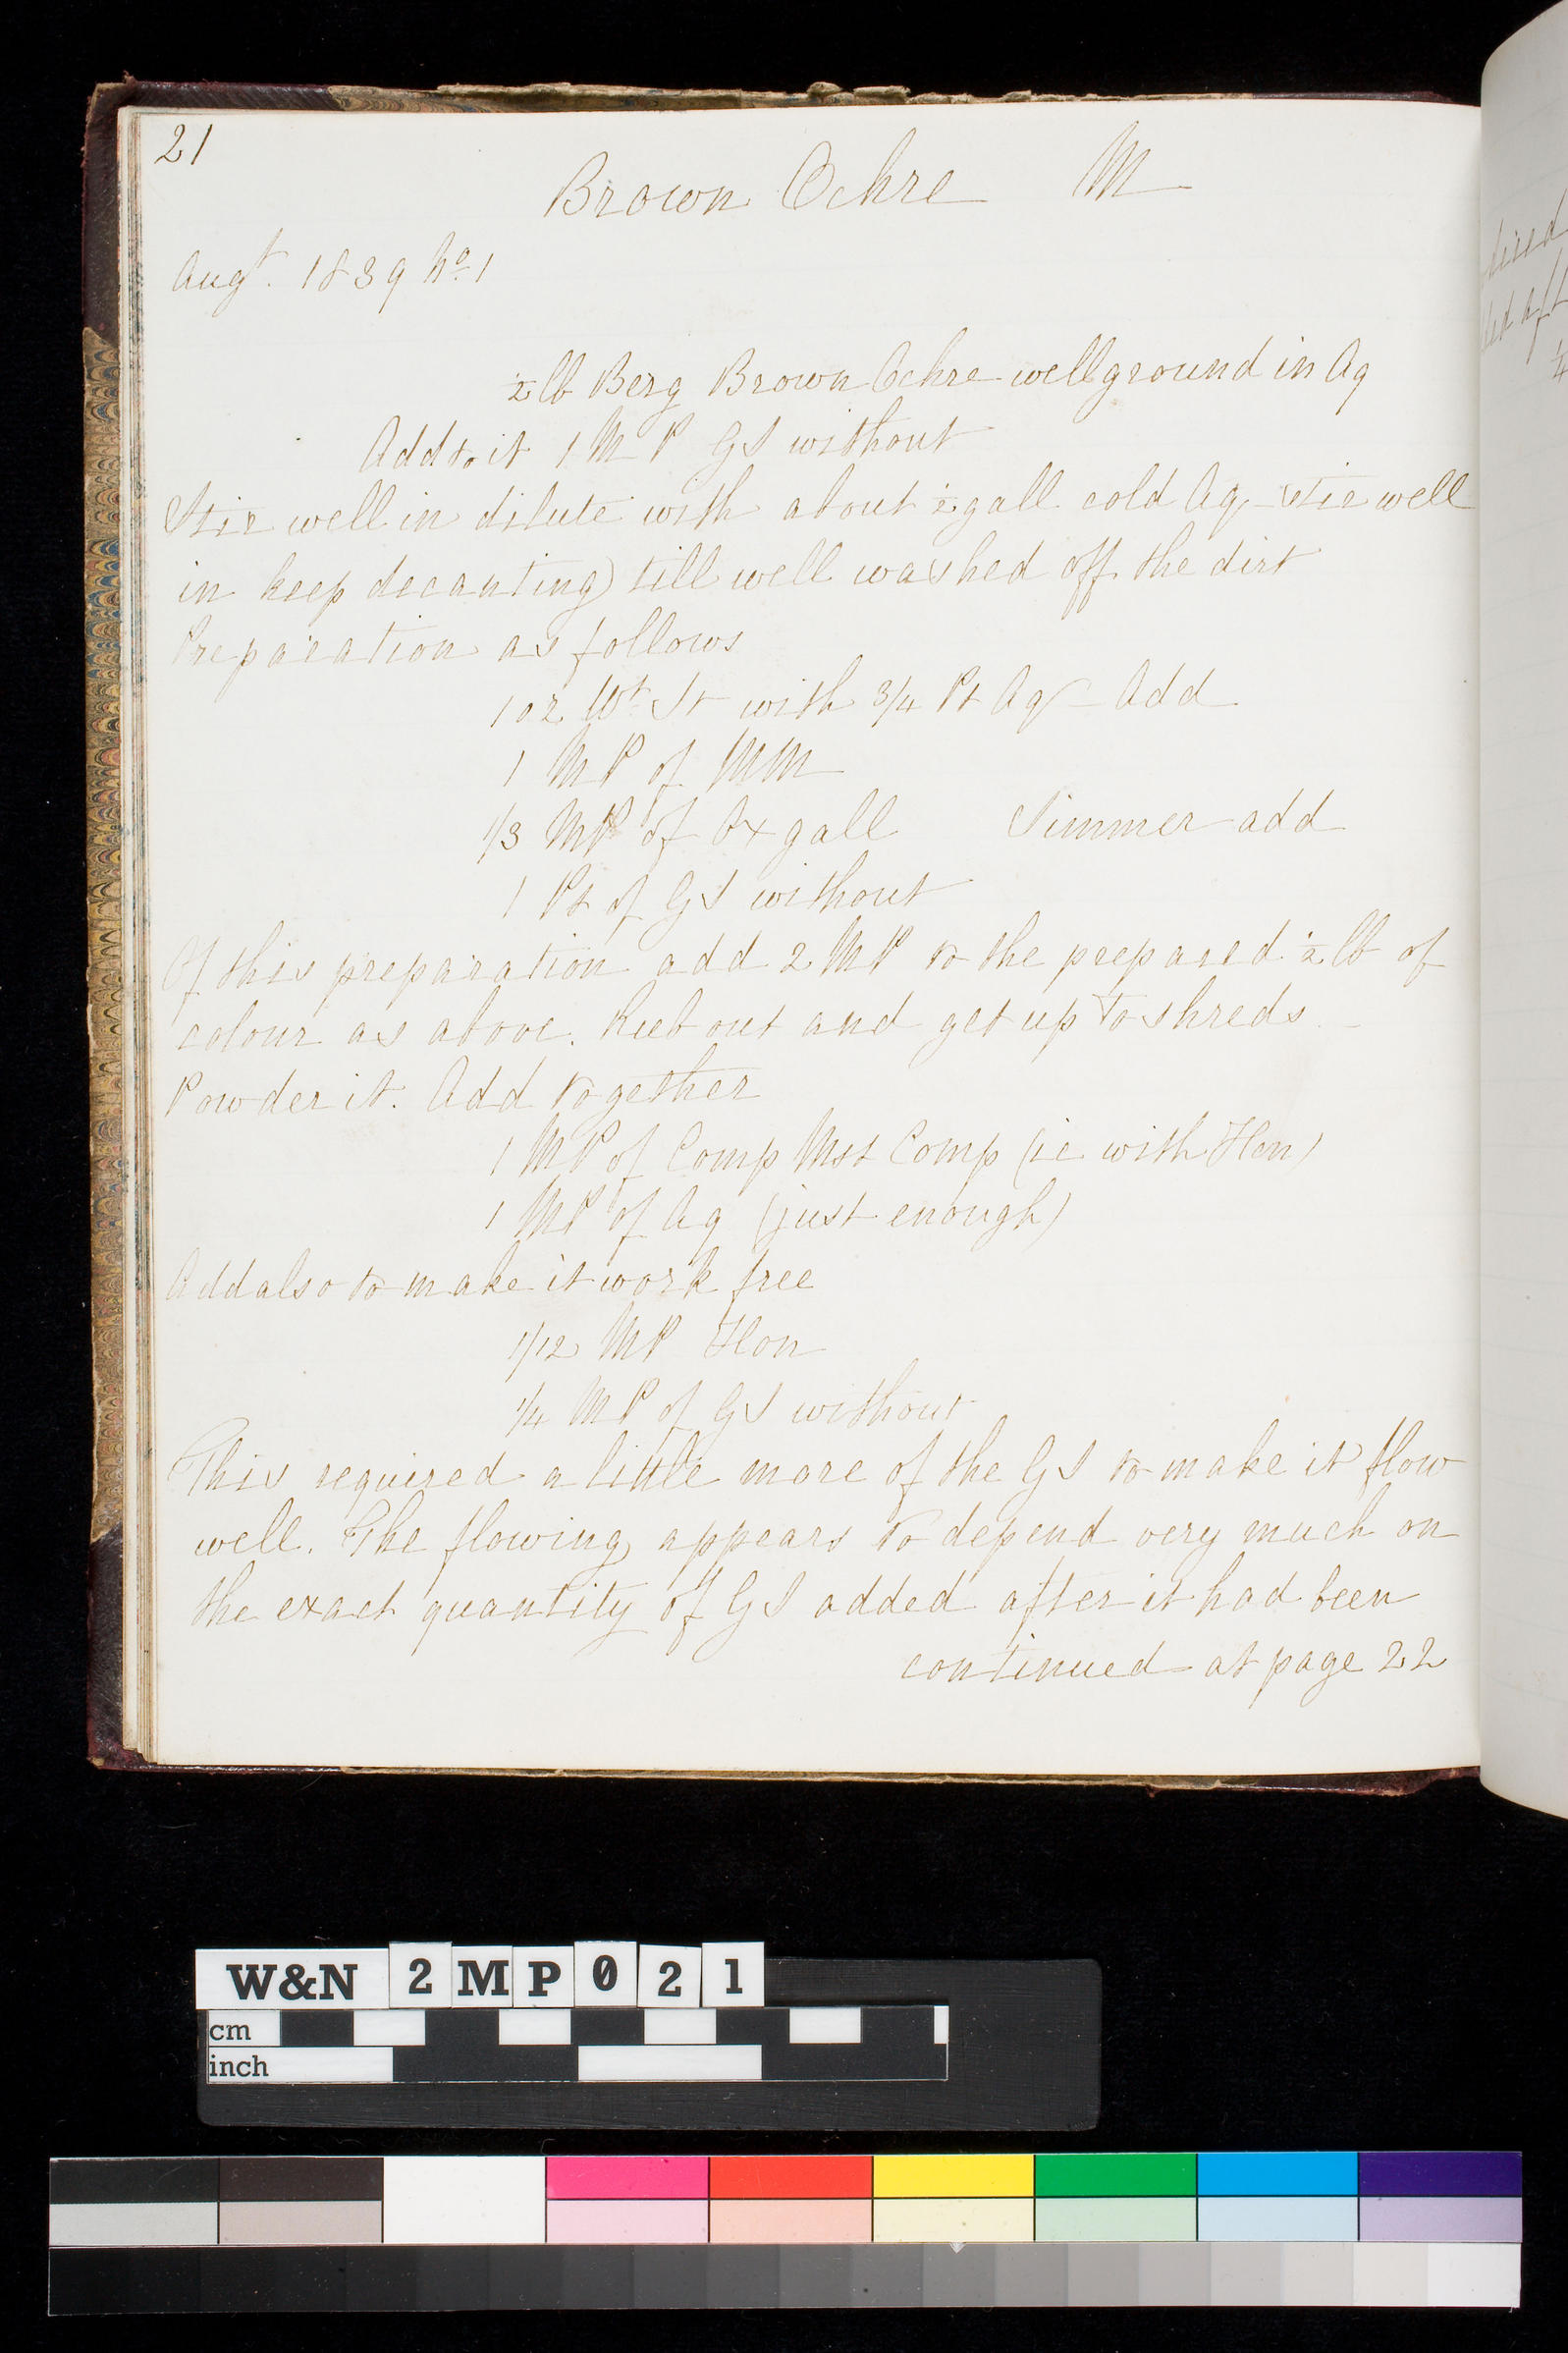 21
Brown Ochre M
Augt. 1839 No 1
½ lb Berg Brown Ochre well ground in Aq
Add to it 1 M P G S without
Stir well in dilute with about ½ gall cold Aq - Stir well
in keep decanting) till well washed off the dirt
Preparation as follows
1 oz Wt St with 3/4 Pt Aq - Add
1 MP of MM
1/3 MP of Ox gall Simmer add
1 Pt of GS without
Of this preparation add 2 MP to the prepared ½ lb of
colour as above. Rub out and get up to shreds -
Powder it. Add together
1 MP of Comp Mst Comp (ie with Hon)
1 MP of Aq (just enough)
Add also to make it work free
1/12 MP Hon
1/4 MP of GS without
This required a little more of the GS to make it flow
well. The flowing appears to depend very much on
the exact quantity of GS added after it had been
continued at page 22
W&N 2MP021
cm
inch